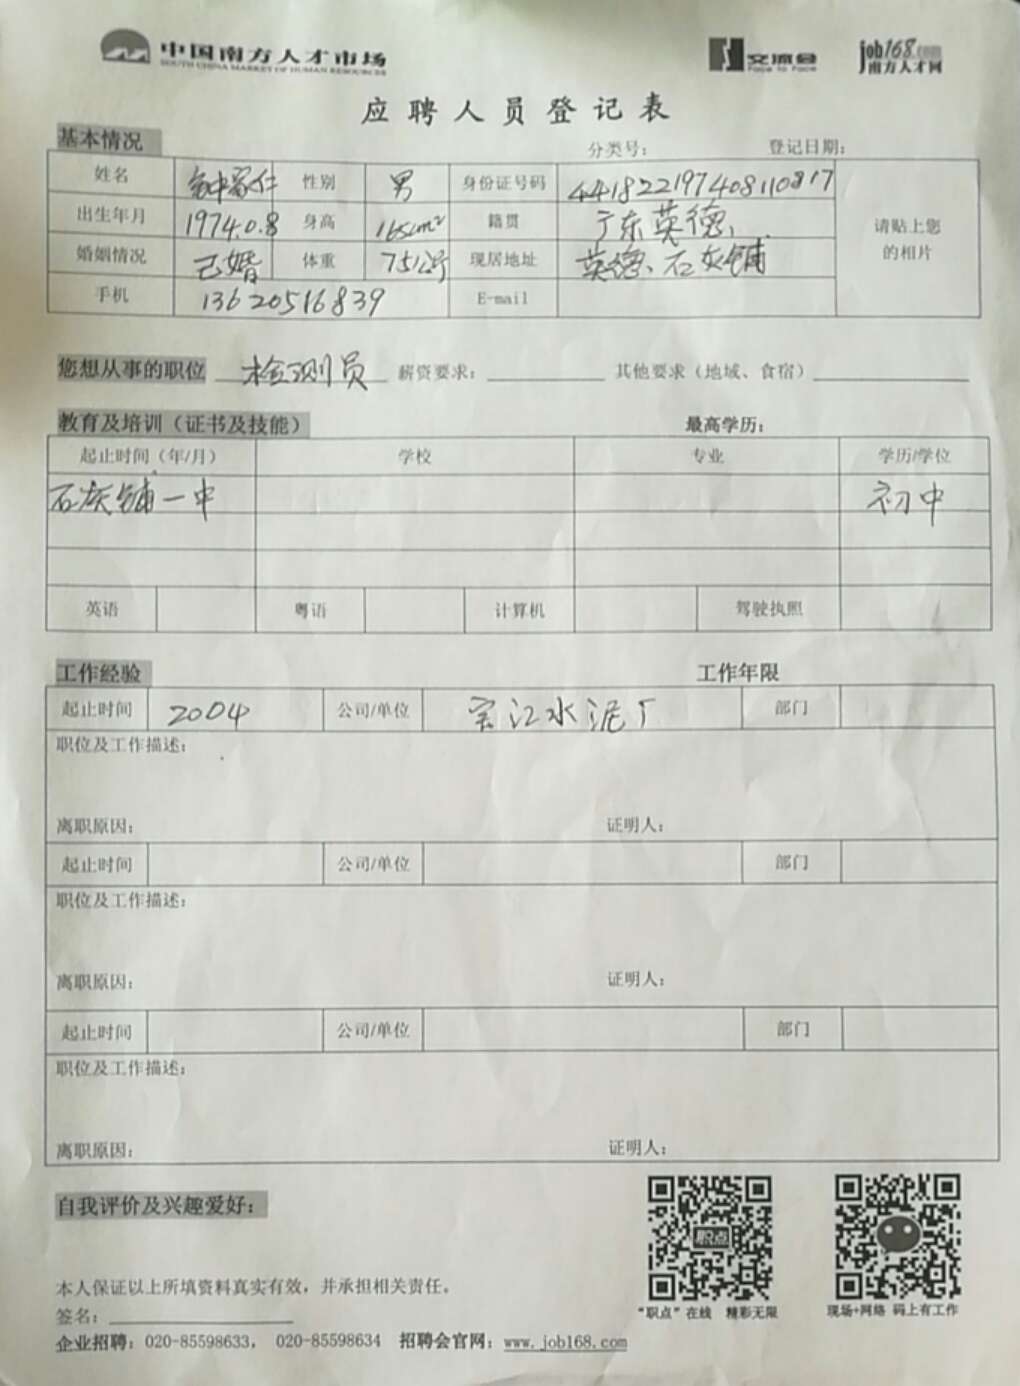 中国南方人才市场
SOUTH CHINA MARKET OF HUMAN RESOURCES
交流会
Face to Face
job168.com
南方人才网
应聘人员登记表
基本情况 分类号： 登记日期：
姓名 钟家仁 性别 男 身份证号码 441822197408110817
出生年月 1974.0.8 身高 165cm² 籍贯 广东英德、
婚姻情况 已婚 体重 75公斤 现居地址 英德、石灰铺
手机 13620516839 E-mail
请贴上您
的相片
您想从事的职位 检测员 薪资要求： 其他要求（地域、食宿）
教育及培训（证书及技能） 最高学历：
起止时间（年/月） 学校 专业 学历/学位
石灰铺一中 初中
英语 粤语 计算机 驾驶执照
工作经验 工作年限
起止时间 2004 公司/单位 宝江水泥厂 部门
职位及工作描述：
离职原因： 证明人：
起止时间 公司/单位 部门
职位及工作描述：
离职原因： 证明人：
起止时间 公司/单位 部门
职位及工作描述：
离职原因： 证明人：
自我评价及兴趣爱好：
职点
本人保证以上所填资料真实有效，并承担相关责任。
签名：
“职点”在线 精彩无限
现场+网络 码上有工作
企业招聘：020-85598633， 020-85598634 招聘会官网：www.job168.com